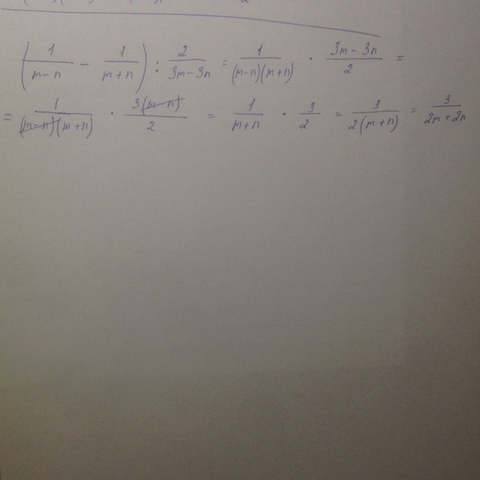 (1/(m-n) - 1/(m+n)) : 2/(3m-3n) = 1/((m-n)(m+n)) · (3m-3n)/2 =
= 1/((m-n)(m+n)) · 3(m-n)/2 = 1/(m+n) · 3/2 = 3/(2(m+n)) = 3/(2m+2n)